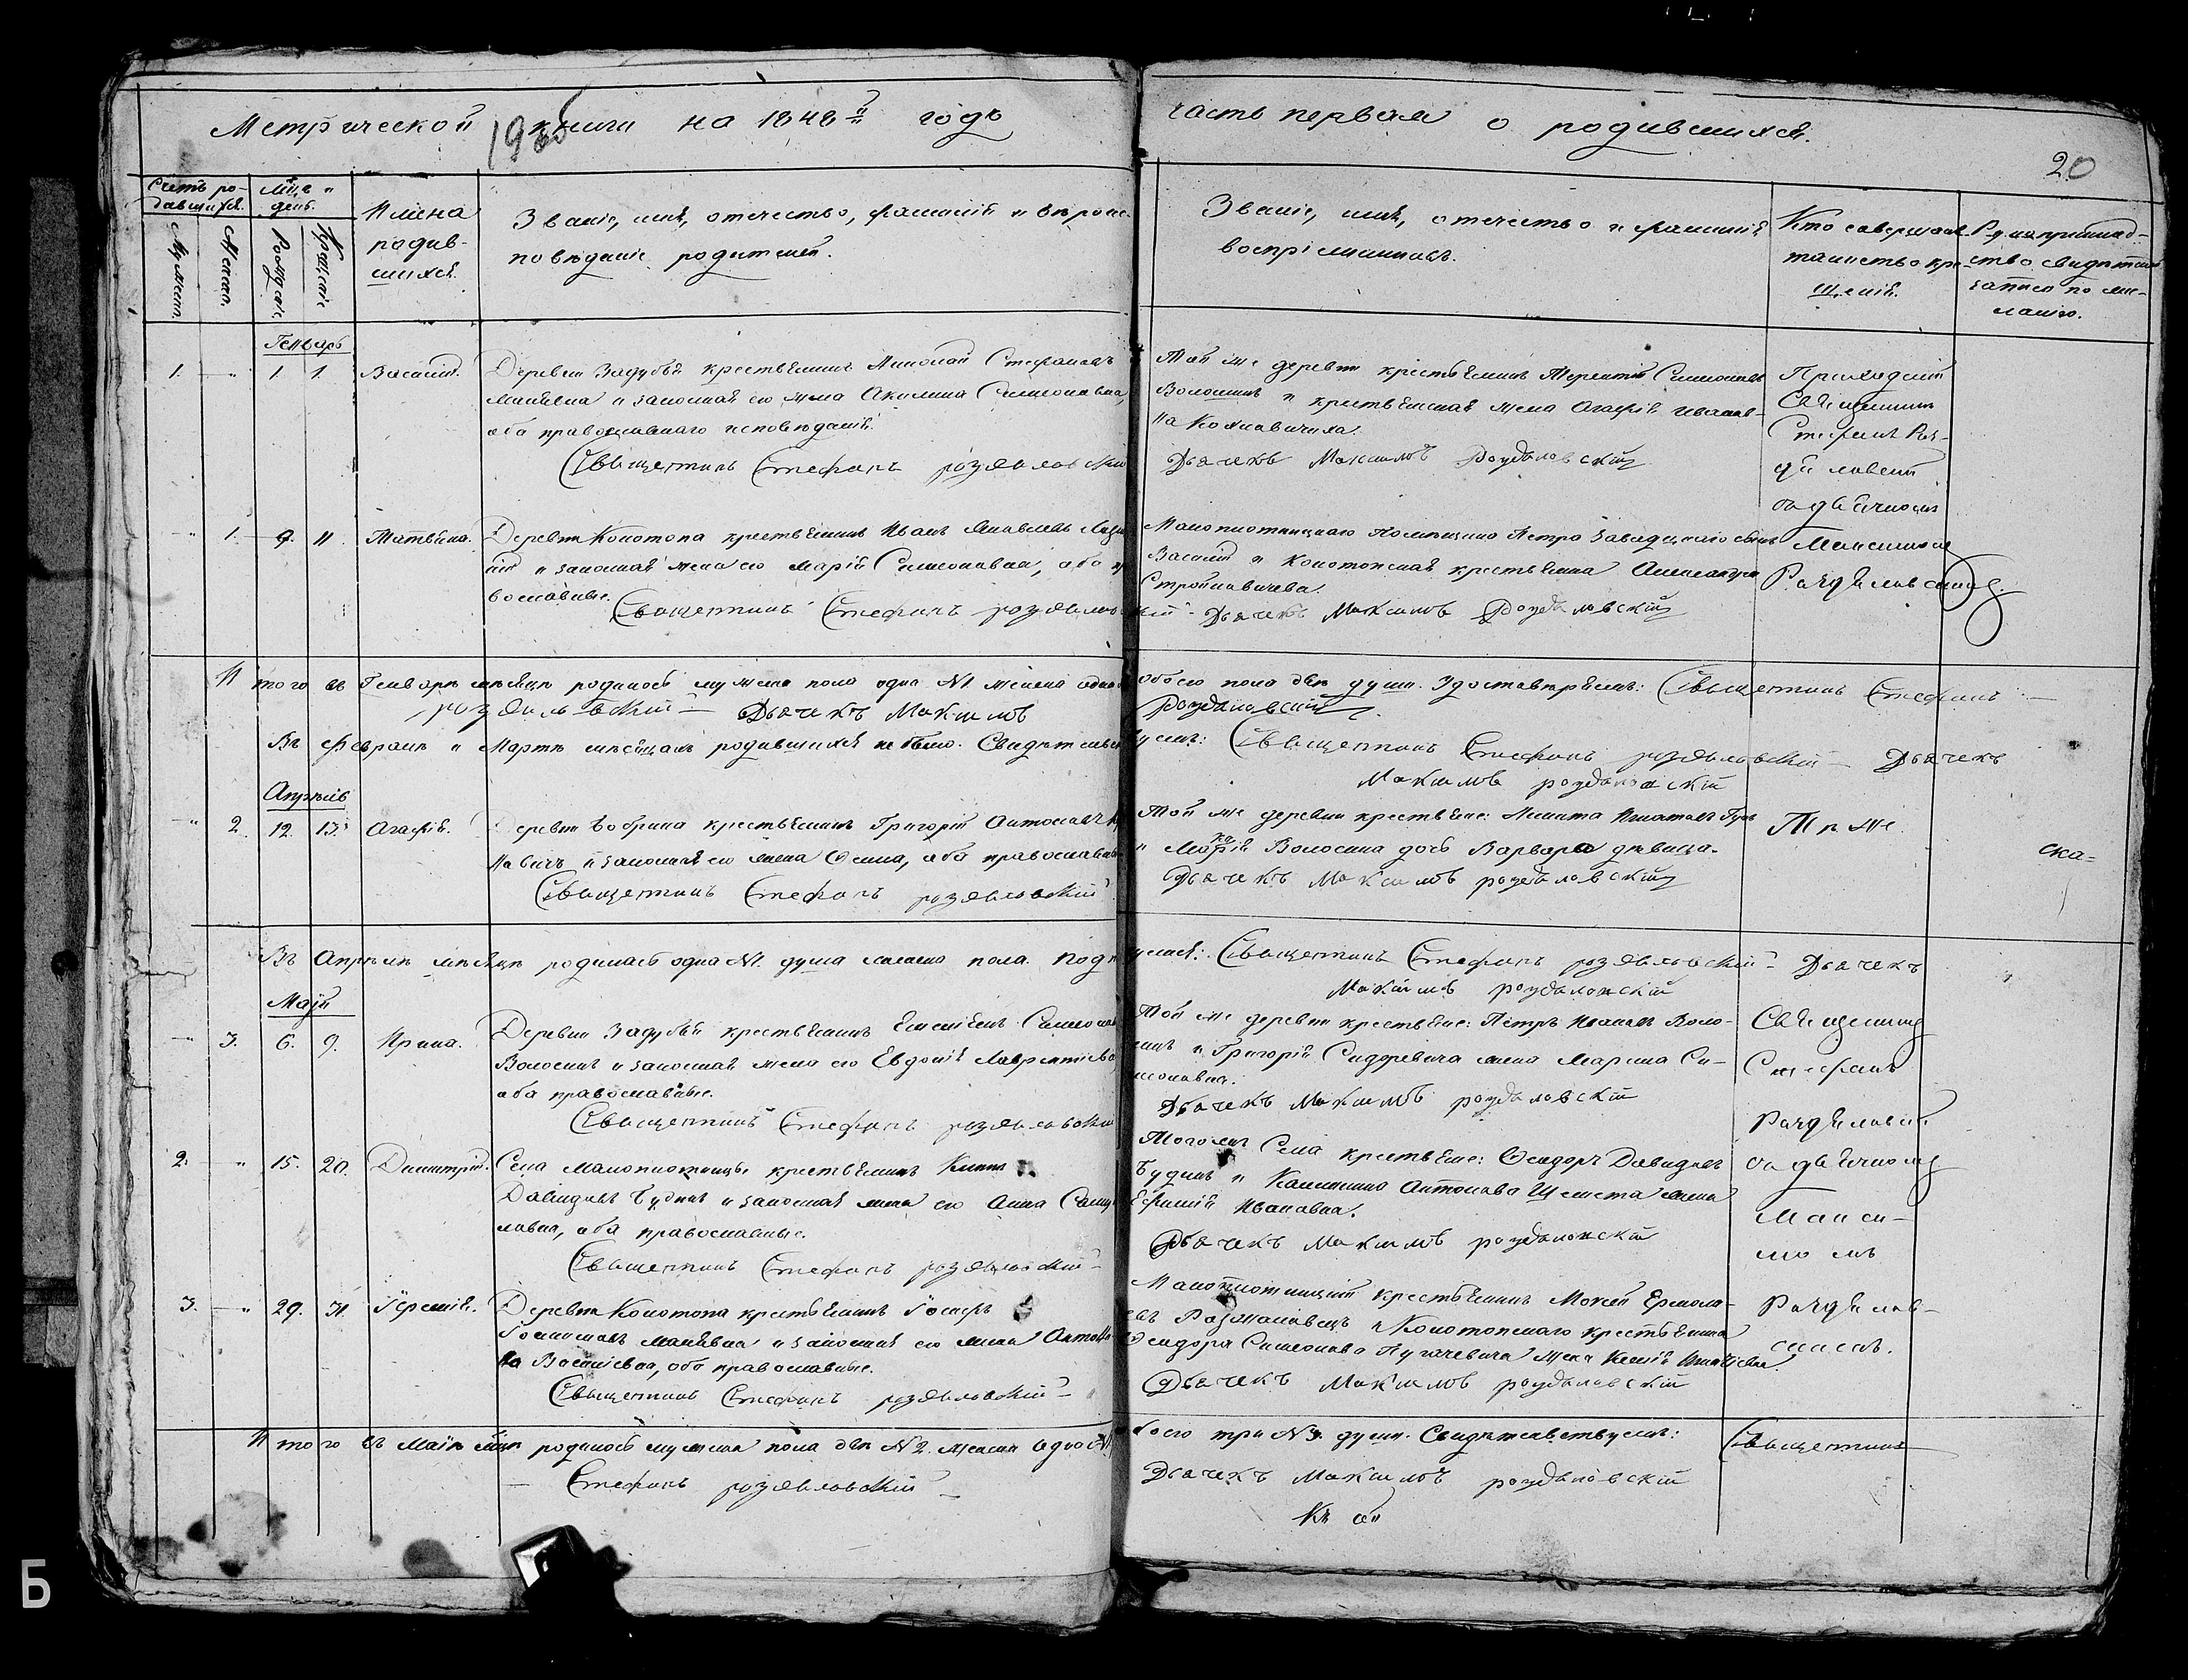 Метрической книги на 1848й годъ
часть первая о родившихся.
198
20
Счетъ ро-
дившихся.
Мцъ и
день.
Имена
родив-
шихся.
Званіе, имя, отечество, фамилія и вѣроис-
повѣданіе родителей.
Мужеск.
Женск.
Рожденіе
Крещеніе
Званіе, имя, отечество и фамилія
воспріемниковъ.
Кто совершалъ
таинство кре-
щенія.
Рукоприклад-
ство свидѣтелей
записи по же-
ланію.
Генварь
1. " 1. 1. Василій. Деревни Задубья крестьянинъ Николай Стефановъ
и законная его жена Акилина Симеоновна,
оба православнаго исповѣданія.
Священникъ Стефанъ Роздяловскій
Той же деревни крестьянинъ Терентій Симеоновъ
Волосинъ и крестьянская жена Агафія Иванов-
на
Дьячекъ Максимъ Роздяловскій
Приходскій
Священникъ
Стефанъ Роз-
дяловскій
съ дьячкомъ
Максимомъ
Роздяловскимъ.
" 1. 9. 11. Татьяна. Деревни Конотопа крестьянинъ Иванъ Яковлевъ
и законная жена его Марія Симеоновна, оба пра
вославные.
Священникъ Стефанъ Роздяловскій
Малоплотницкаго помѣщика Петра Завадскаго сынъ
Василій и Конотопская крестьянка Александра
Стройновичева.
Дьячекъ Максимъ Роздяловскій
Итого въ Генварѣ мѣсяцѣ родилось мужеска пола одна №1 женска одна
обоего пола двѣ души. Удостовѣряемъ: Священникъ Стефанъ
Роздяловскій Дьячекъ Максимъ
Роздяловскій
Въ Февралѣ и Мартѣ мѣсяцахъ родившихся не было. Свидѣтельст
вуемъ: Священникъ Стефанъ Роздяловскій Дьячекъ
Максимъ Роздяловскій
Апрѣль
" 2. 12. 13. Агафія. Деревни Бобрика крестьянинъ Григорій Антоновъ
новичъ и законная его жена Фекла, оба православные
Священникъ Стефанъ Роздяловскій
Той же деревни крестьяне: Никита Игнатовъ
и Марка Волосина дочь Варвара дѣвица.
Дьячекъ Максимъ Роздяловскій
Тѣ же
ска-
Въ Апрѣлѣ мѣсяцѣ родилась одна №1. душа женска пола. Подп
Священникъ Стефанъ Роздяловскій Дьячекъ
Максимъ Роздяловскій
Май
" 3. 6. 9. Ирина. Деревни Задубья крестьянинъ Емеліянъ Симеоновъ
Волосинъ и законная жена его Евдокія Лаврентіева
оба православные.
Священникъ Стефанъ Роздяловскій
Той же деревни крестьяне: Петръ Ивановъ Воло-
синъ и Григорія Сидоревича жена Марина Си-
меоновна.
Дьячекъ Максимъ Роздяловскій
Священникъ
Стефанъ
Роздяловскій
съ дьячкомъ
Макси-
момъ
Роздялов-
скимъ.
2. " 15. 20. Димитрій. Села Малоплотницы крестьянинъ
Давидовъ Будникъ и законная жена его Анна
ловна, оба православные.
Священникъ Стефанъ Роздяловскій
Того же Села крестьяне: Феодоръ Давидовъ
Будникъ и Калиника Антонова Шелеста жена
Евфимія Ивановна.
Дьячекъ Максимъ Роздяловскій
3. " 29. 31. Іеремія. Деревни Конотопа крестьянинъ Іосифъ
и законная его жена Антони-
на Васильевна, оба православные.
Священникъ Стефанъ Роздяловскій
Малоплотницкій крестьянинъ Мокей Ермола-
евъ и Конотопскаго крестьянина
Феодора Симеонова Пугачевича жена Ксенія Игнатіевна
Дьячекъ Максимъ Роздяловскій
Итого въ Маіѣ мцѣ родилось мужеска пола двѣ №2. женска одно №1
боего три №3. души. Свидѣтельствуемъ: Священникъ
Стефанъ Роздяловскій
Дьячекъ Максимъ Роздяловскій
Б